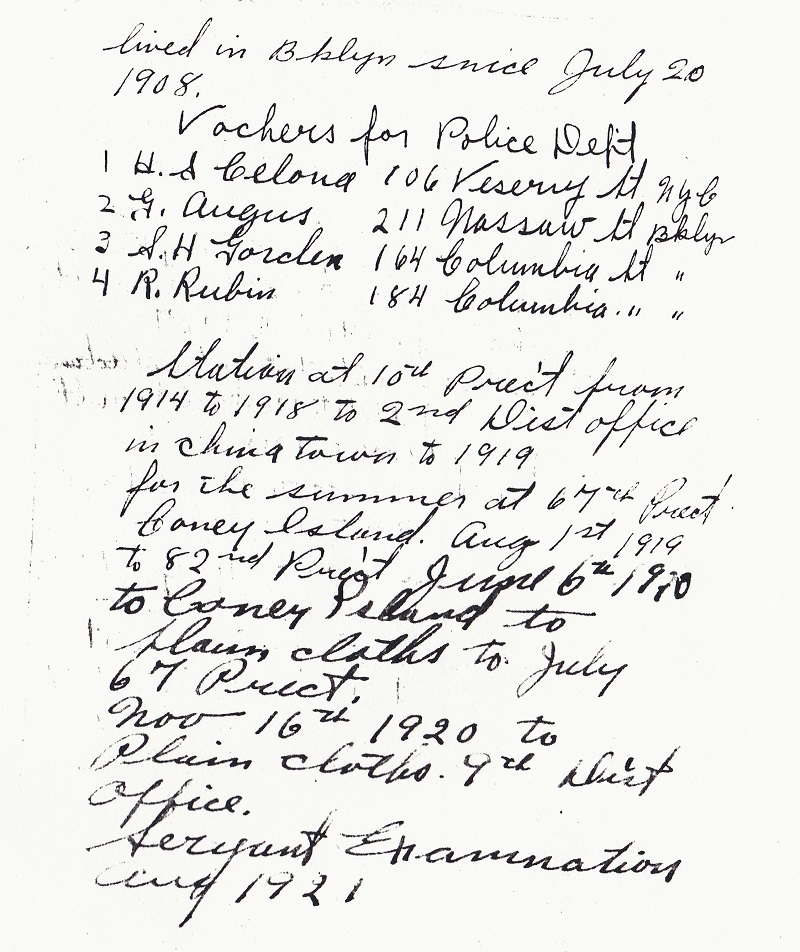 lived in Bklyn snice July 20
1908.
Vochers for Police Dept
1 H. S Celona 106 Veserry St NyC
2 G. Augus 211 Nassaw St Bklyn
3 S. H Gorden 164 Columbia St "
4 R. Rubin 184 Columbia. " "
Station at 10th Prec't from
1914 to 1918 to 2nd Dist office
in china town to 1919
for the summer at 67th Prect.
Coney Island. Aug 1st 1919
to 82nd Prec't June 6th 1920
to Coney Island to
plain cloths to July
67 Prect.
Nov 16th 1920 to
Plain cloths. 9th Dist
Office.
Sergant Examnation
Aug 1921